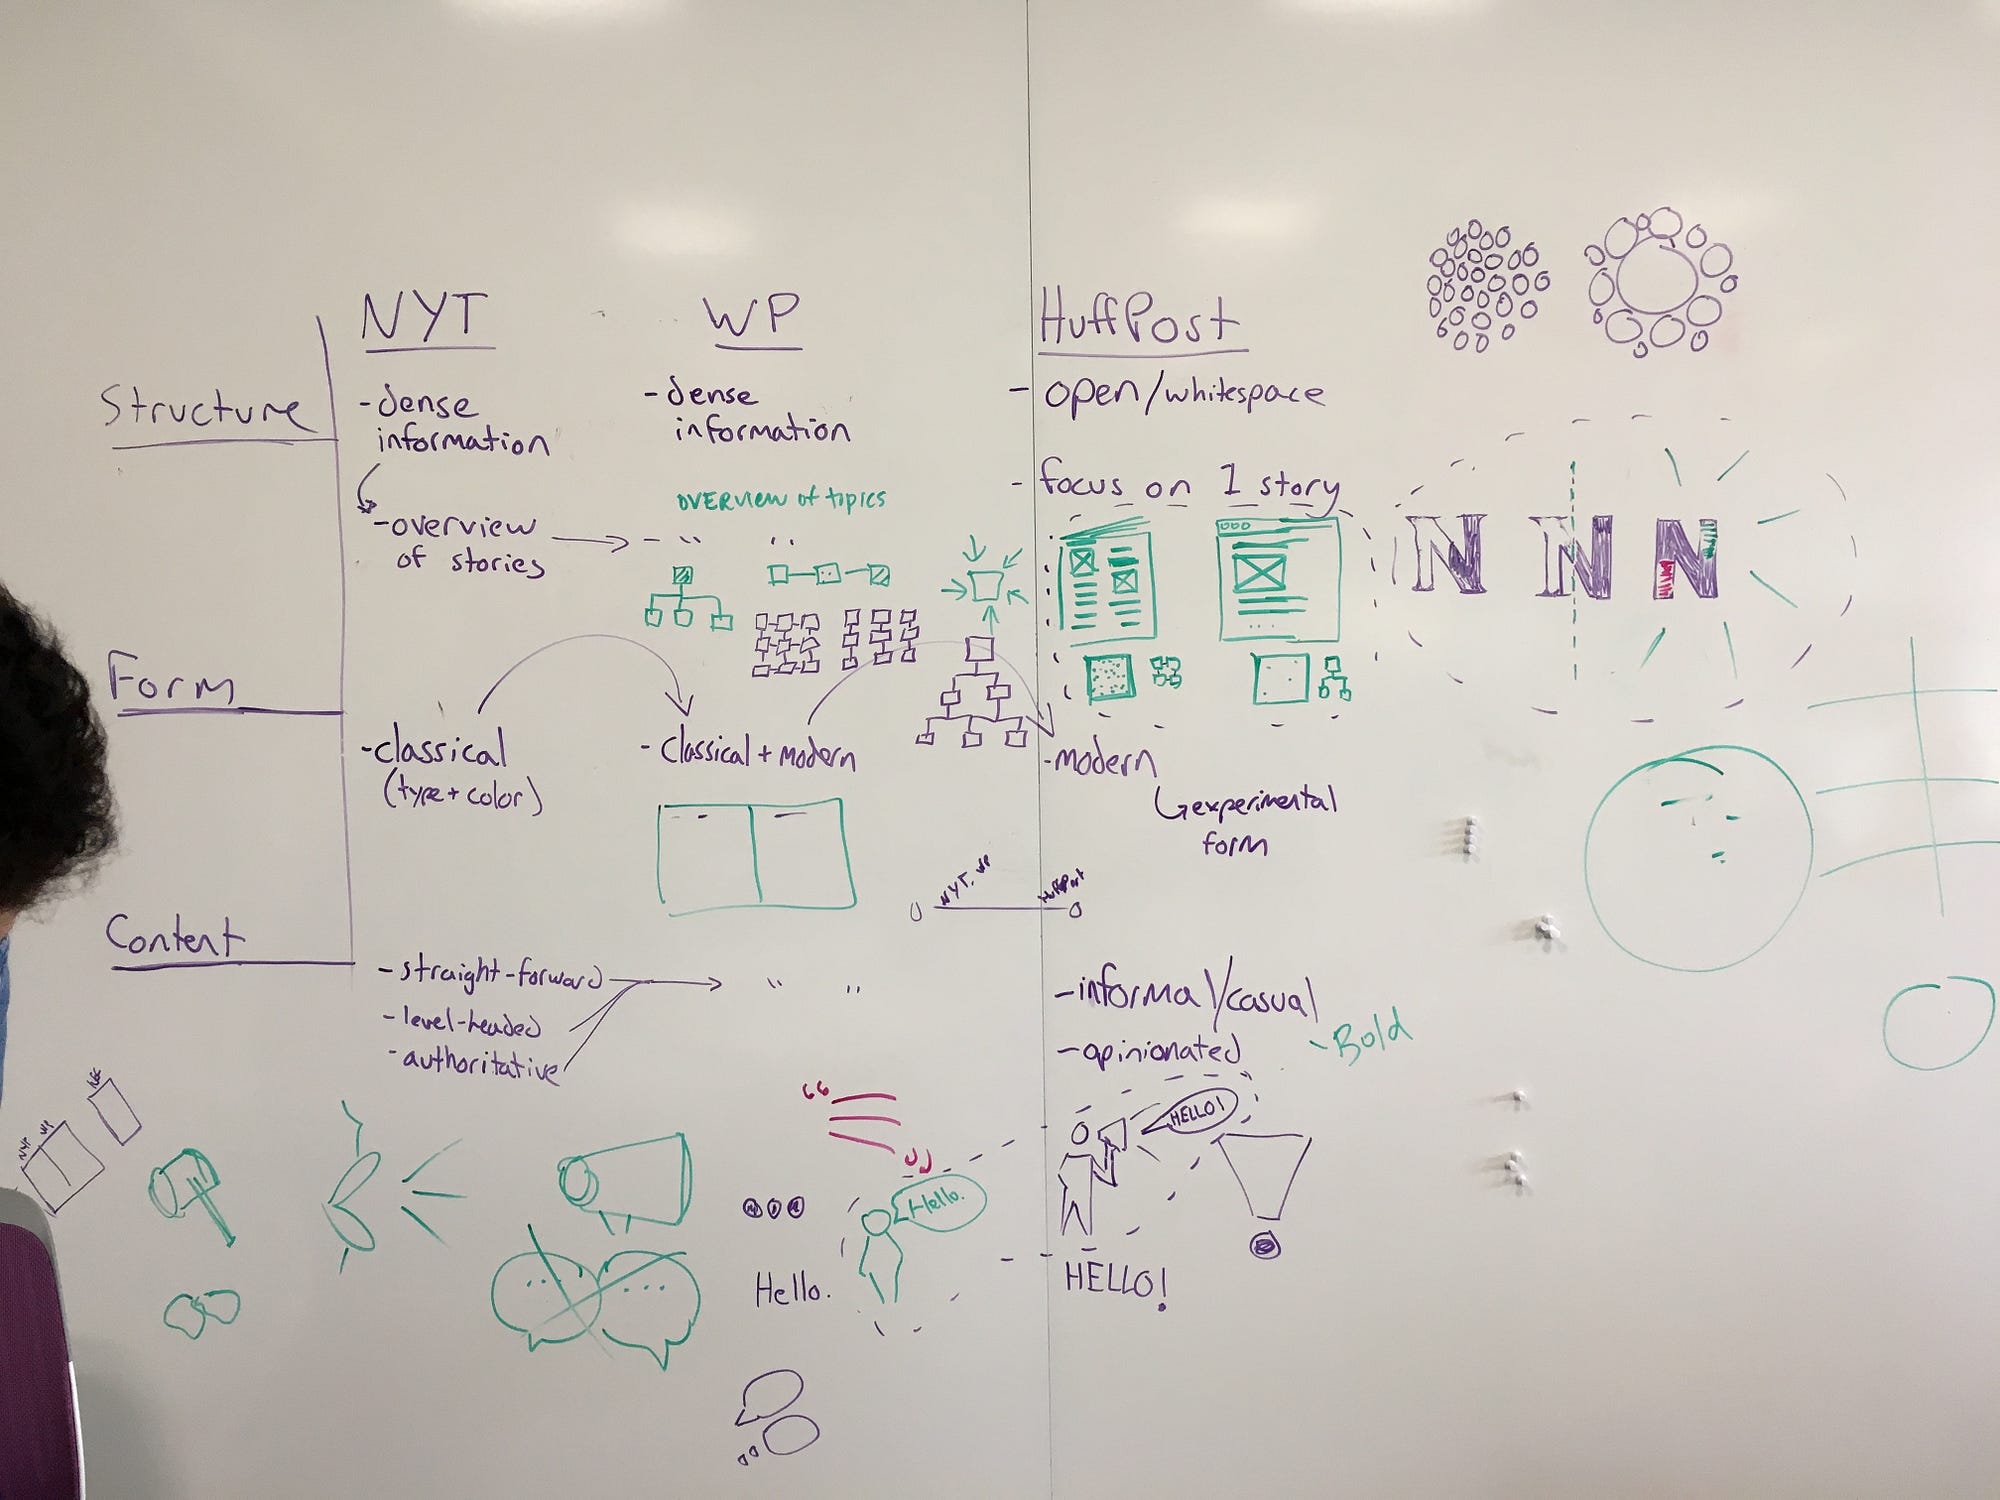 NYT
WP
HuffPost
Structure
-dense
information
-overview
of stories
-dense
information
OVERVIEW of topics
- " "
- open/whitespace
- focus on 1 story
N N N
Form
-classical
(type+color)
- Classical + modern
-modern
experimental
form
NYT, WP
HuffPost
Content
-straight-forward
-level-headed
-authoritative
" "
-informal/casual
-opinionated
-Bold
NYT WP
“
”
Hello.
HELLO!
Hello.
HELLO!